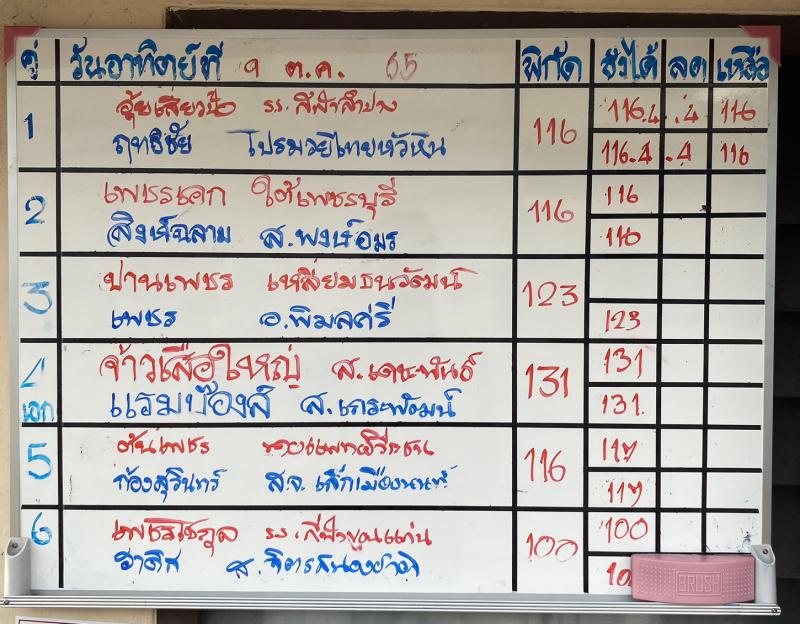 คู่ วันอาทิตย์ที่ 9 ต.ค. 65 พิกัด ชั่งได้ ลด เหลือ
1 116
อุ้ยเสี่ยวป้อ ร.ร.กีฬาลำปาง 116.4 .4 116
ฤทธิชัย โปรมวยไทยหัวหิน 116.4 .4 116
2 116
เพชรเอก ใต้เพชรบุรี 116
สิงห์ฉลาม ส.พงษ์อมร 116
3 123
ปานเพชร เหลี่ยมธนวัฒน์
เพชร อ.พิมลศรี 123
4 เอก 131
จ้าวเสือใหญ่ ส.เดชะพันธ์ 131
แรมบ้องส์ ส.เถระพัฒน์ 131
5 116
ต้นเพชร 117
ก้องสุรินทร์ ส.จ.เล็กเมืองนนท์ 117
6 100
ร.ร.กีฬาขอนแก่น 100
ส.จิตรสนองชาติ
BRUSH